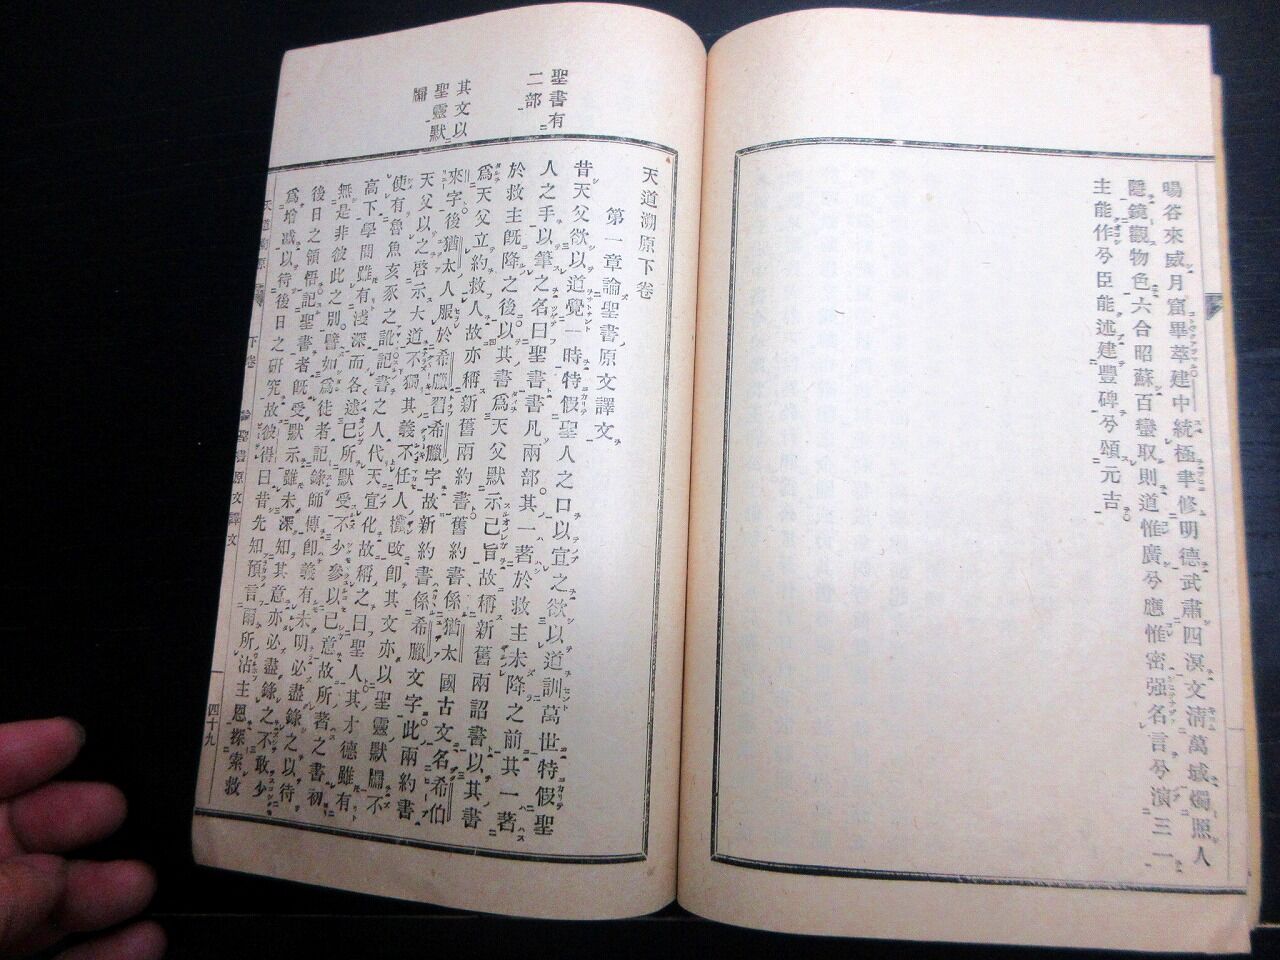 暘谷來威月窟畢萃建中統極聿修明德武肅四溟文淸萬域燭照人
隱鏡觀物色六合昭蘇百蠻取則道惟廣兮應惟密强名言兮演三一
主能作兮臣能述建豐碑兮頌元吉
聖書有
二部
其文以
聖靈默
牖
天道溯原下卷
第一章論聖書原文譯文
昔天父欲以道覺一時特假聖人之口以宣之欲以道訓萬世特假聖
人之手以筆之名曰聖書書凡兩部其一著於救主未降之前其一著
於救主旣降之後以其書爲天父默示己旨故稱新舊兩詔書以其書
爲天父立約救人故亦稱新舊兩約書舊約書係猶太國古文名希伯
來字後猶太人服於希臘習希臘字故新約書係希臘文字此兩約書
天父以之啓示大道不獨其義不任人攙改卽其文亦以聖靈默牖不
使有魯魚亥豕之訛記書之人代天宣化故稱之曰聖人其才德雖有
高下學問雖有淺深而各述己所默受不少參以己意故所著之書初
無是非彼此之別譬如爲徒者記錄師傳卽義有未明必盡錄之以待
後日之領悟記聖書者旣受默示雖未深知其意亦必盡錄之不敢少
爲增減以待後日之硏究故彼得曰昔先知預言爾所沾主恩探索救
天道溯原 下卷 論聖書原文譯文 四十九